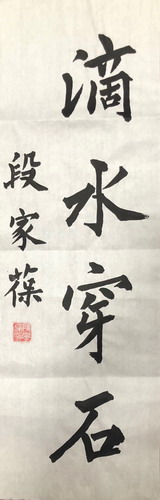 滴水穿石
段家葆